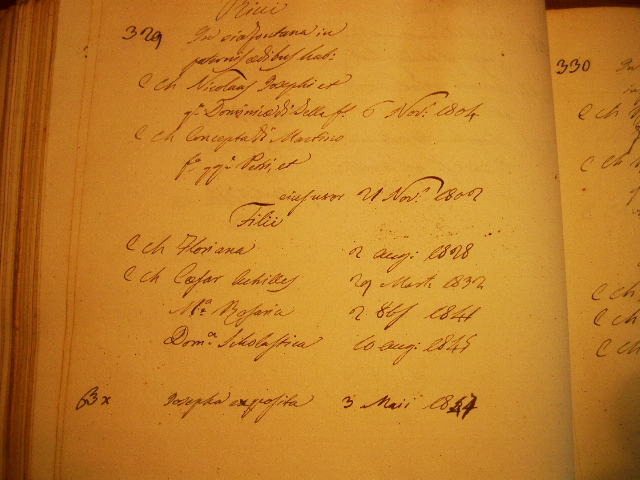 Ricci
329 In via fontana in
paternis ædibus hab:
C ch Nicolaus Josephi et
qm Dominicæ di Iella fs 6 Nov: 1804
C ch Concepta di Martino
fa qqm Petri, et
ejus uxor 21 Nov: 1802
Filii
C ch Floriana 2 aug: 1828
C ch Cæsar Achilles 29 Mart: 1832
Ma Rosaria 2 8bs 1841
Doma Scholastica 10 aug: 1845
63x Josepha exposita 3 Maii
330 In
C ch
C ch
C ch
C ch
C ch